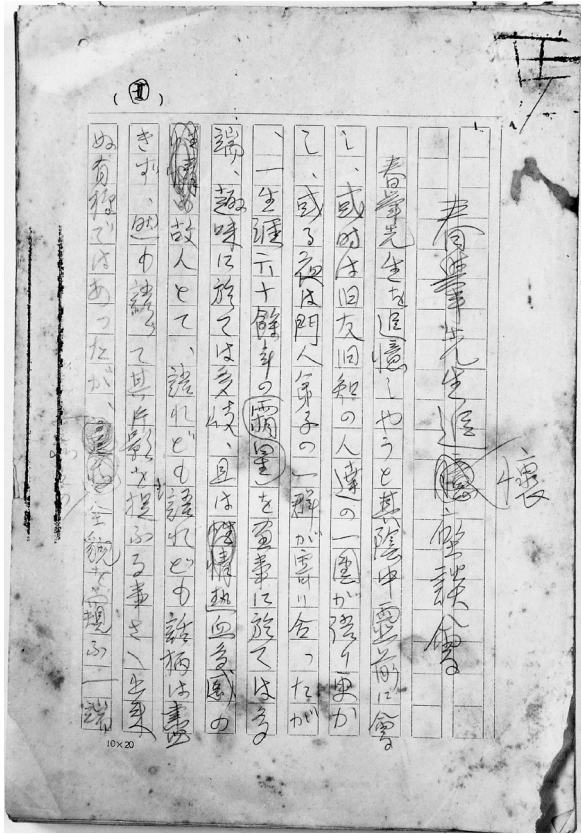 正
(Ⅱ)
春挙先生追懐座談会
春挙先生を追憶しやうと其陰中霊前に會
し、或時は旧友旧知の人達の一團が語り更か
し、或る夜は門人弟子の一群が語り合つたが
、一生涯六十餘年の霜星を画事に於ては多
端、趣味に於ては多岐、且は性情熱血多感の
故人とて、語れども語れども話柄は盡
きず、迚も語つて其片影を捉ふる事さへ出来
ぬ有様ではあつたが、全貌を窺ふ一端
10×20